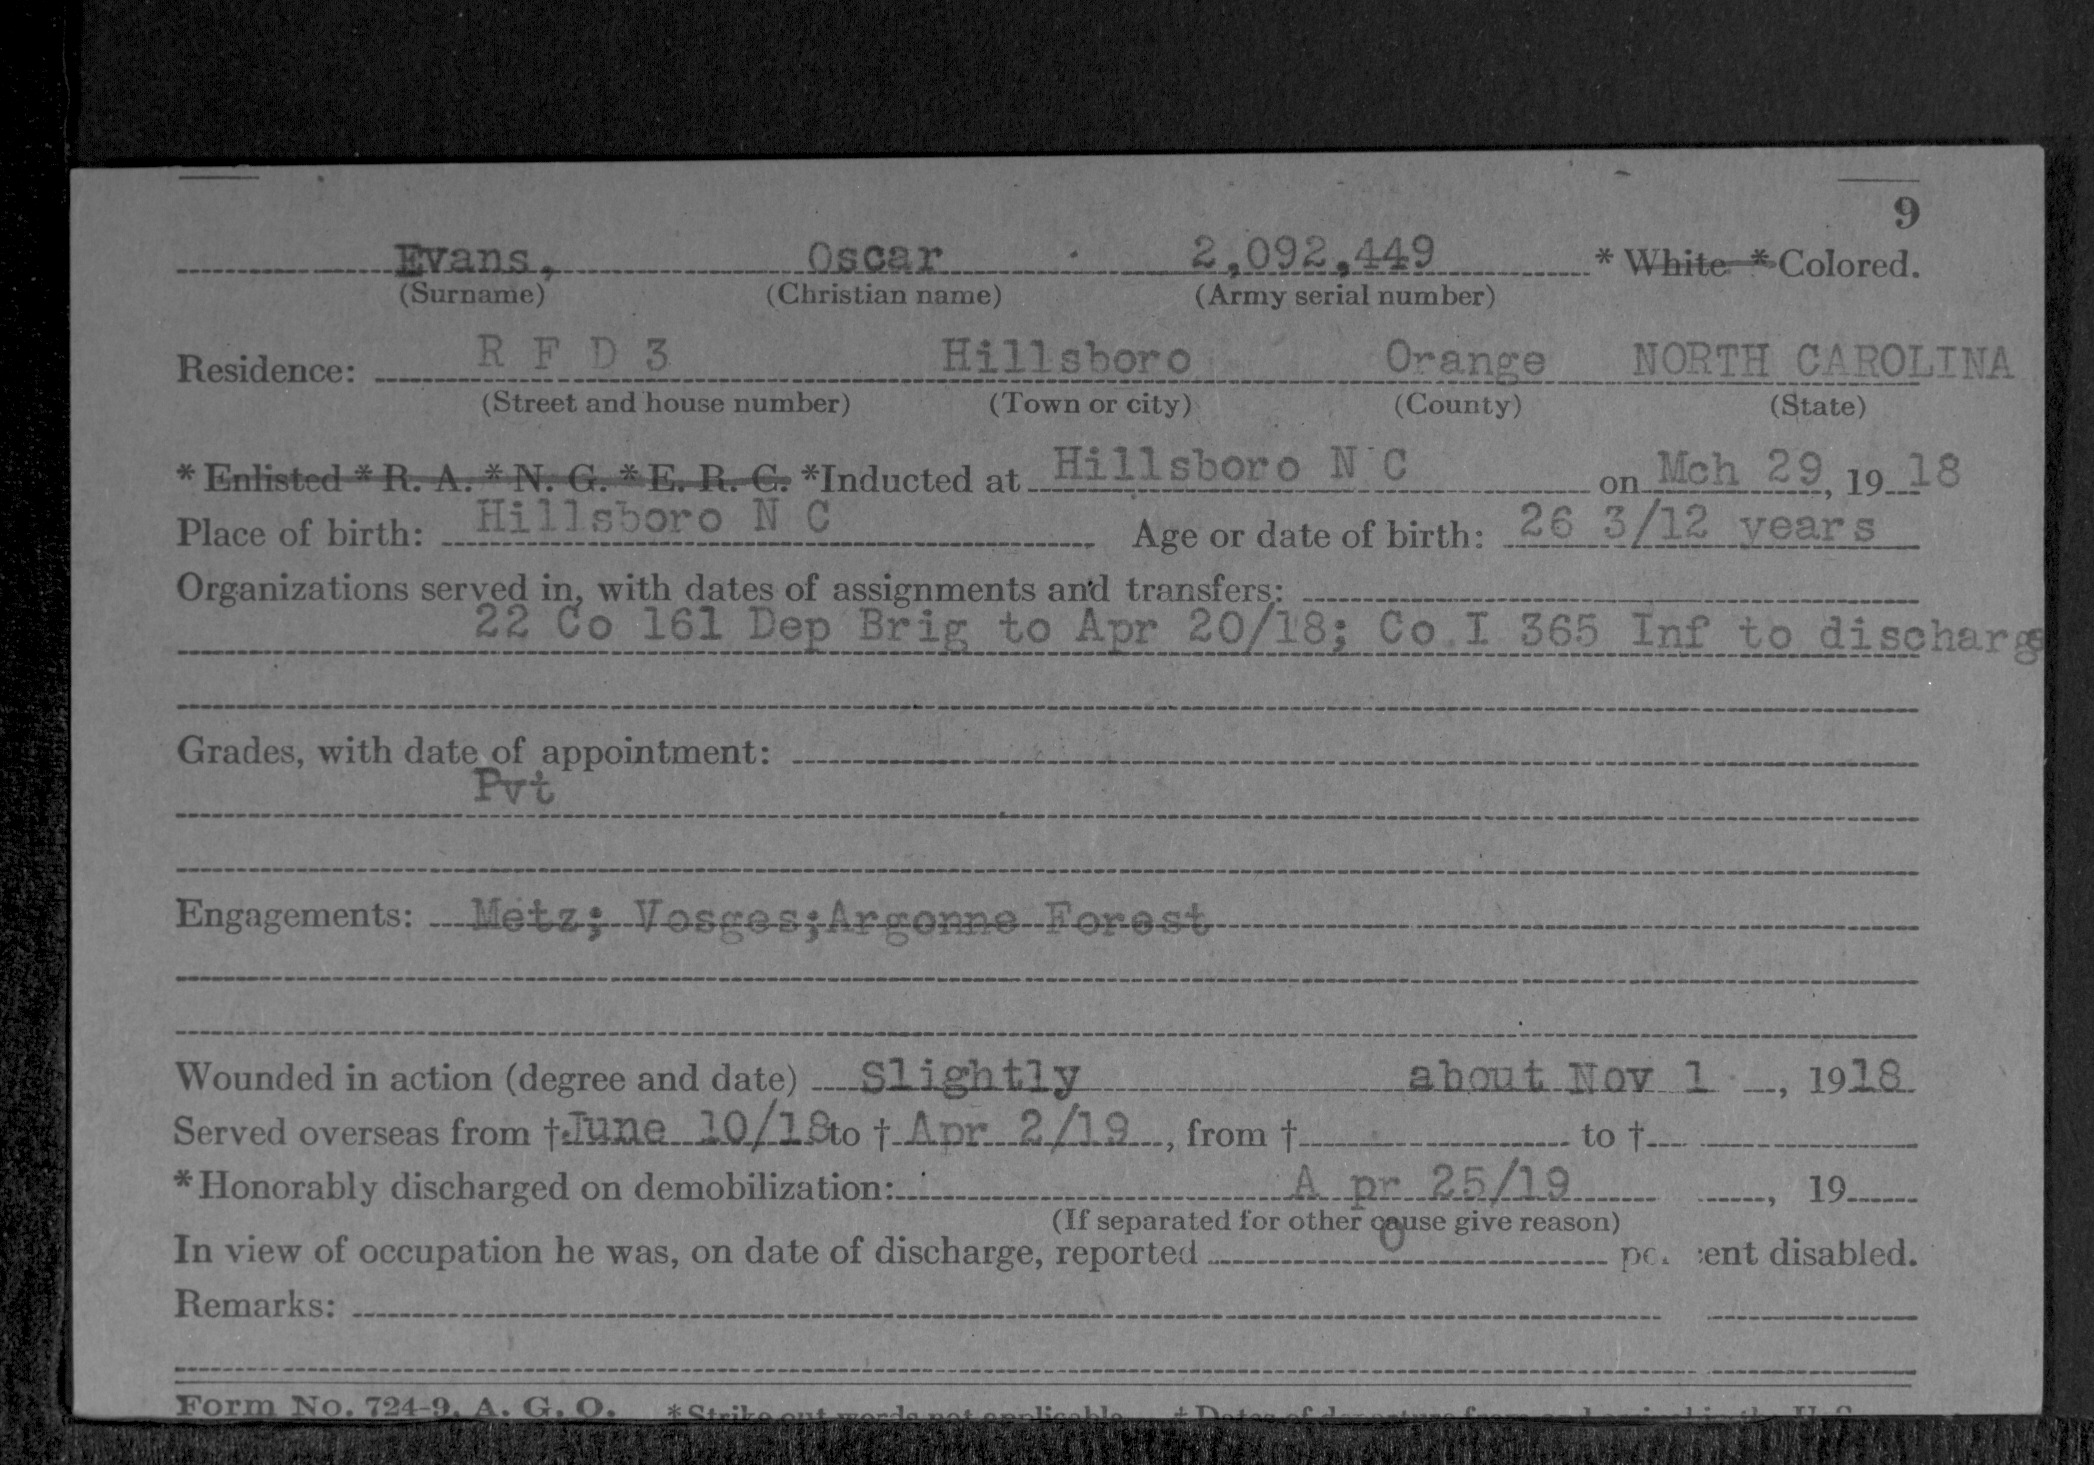 9
Evans, Oscar 2,092,449 * White * Colored.
(Surname) (Christian name) (Army serial number)
Residence: R F D 3 Hillsboro Orange NORTH CAROLINA
(Street and house number) (Town or city) (County) (State)
* Enlisted * R. A. * N. G. * E. R. C. *Inducted at Hillsboro N C on Mch 29, 19 18
Place of birth: Hillsboro N C Age or date of birth: 26 3/12 years
Organizations served in, with dates of assignments and transfers:
22 Co 161 Dep Brig to Apr 20/18; Co I 365 Inf to discharge
Grades, with date of appointment:
Pvt
Engagements: Metz; Vosges;Argonne Forest
Wounded in action (degree and date) Slightly about Nov 1, 1918
Served overseas from † June 10/18 to † Apr 2/19, from † to †
*Honorably discharged on demobilization: A pr 25/19, 19
(If separated for other cause give reason)
0
In view of occupation he was, on date of discharge, reported per cent disabled.
Remarks:
Form No. 724-9, A. G. O. *Strike out words not applicable. † Dates of departure from and arrival in the U. S.